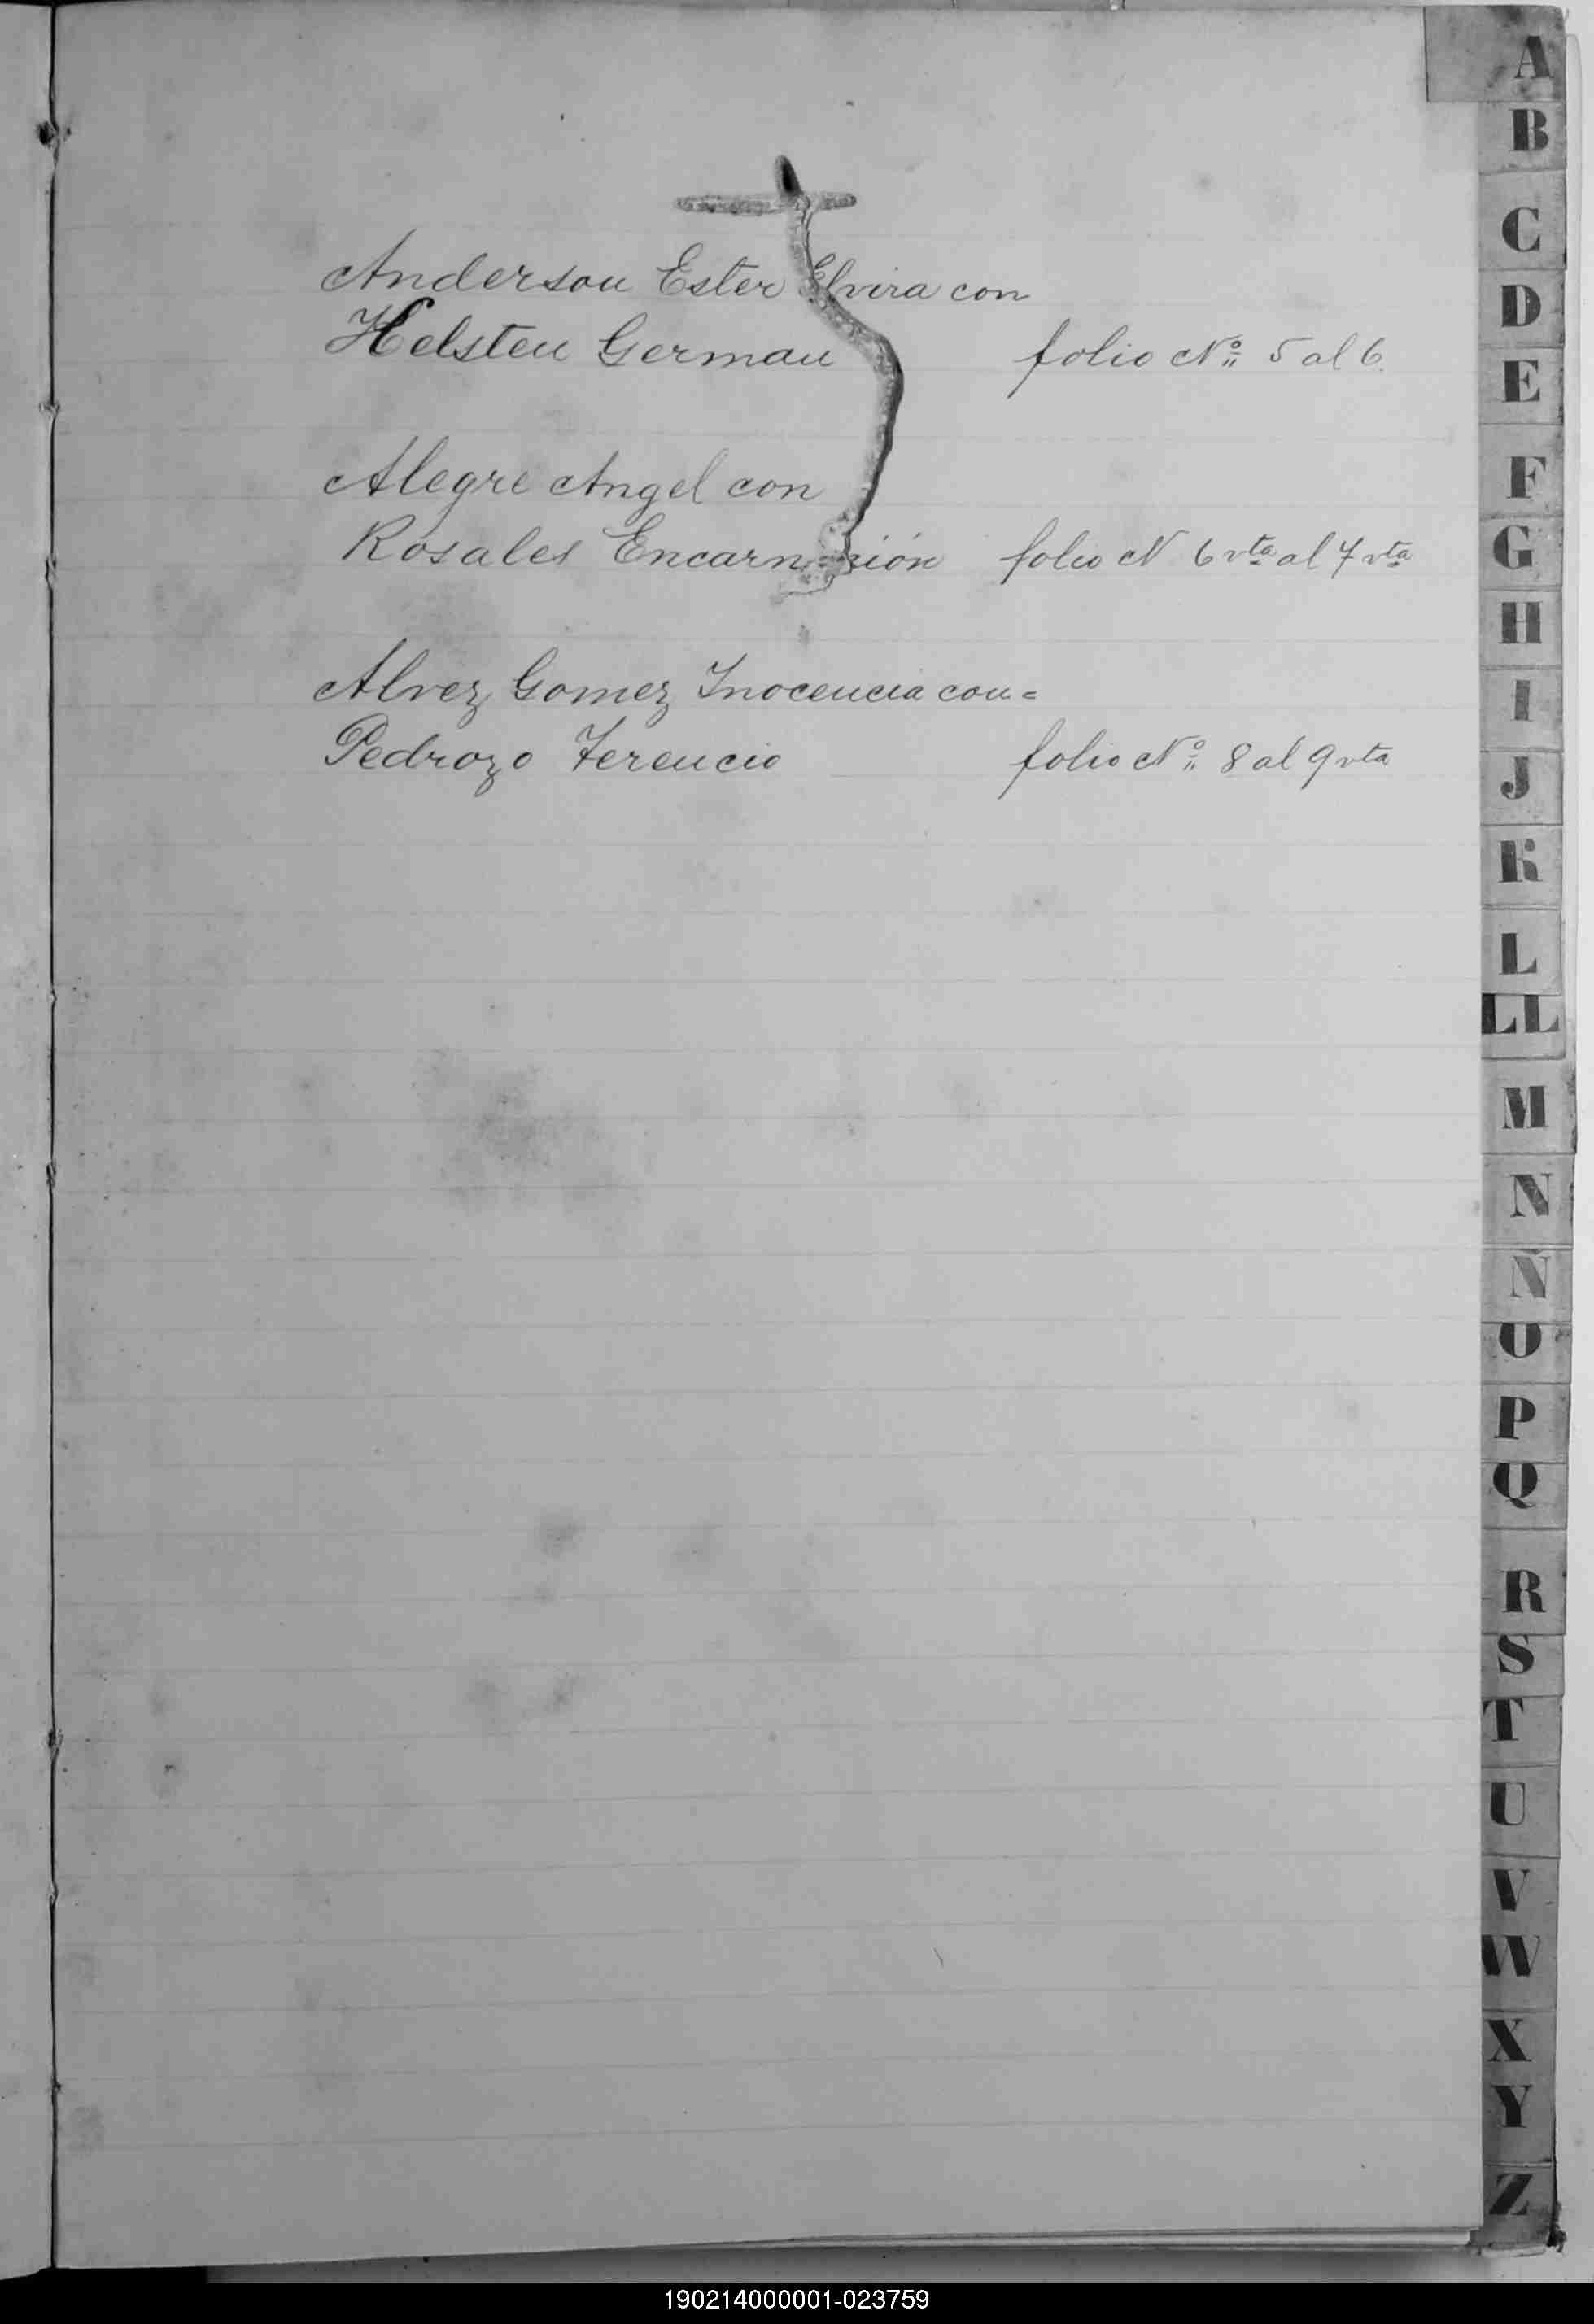 Anderson Ester Elvira con
Helsten German folio Nº 5 al 6.
Alegre Angel con
Rosales Encarnación folio N 6 vta al 7 vta
Alvez Gomez Inocencia con=
Pedrozo Terencio folio Nº 8 al 9 vta
A
B
C
D
E
F
G
H
I
J
K
L
LL
M
N
Ñ
O
P
Q
R
S
T
U
V
W
X
Y
Z
190214000001-023759